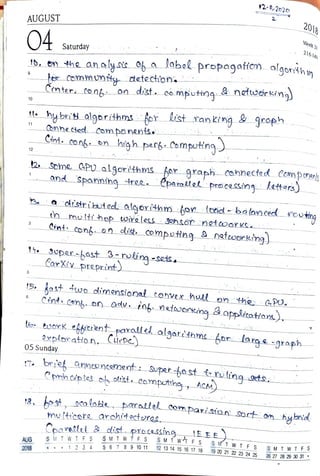 12-8-2020
2
AUGUST
2018
04 Saturday
10. on the analysis of a label propagation algorithm
for community detection.
(inter. conf. on dist. computing & networking)
11. hybrid algorithms for list ranking & graph
connected components.
(int. conf. on high perf. computing)
12. some GPU algorithms for graph connected components
and spanning tree. (parallel processing letters)
13. a distributed algorithm for load-balanced routing
in multihop wireless sensor networks.
(int. conf. on dist. computing & networking)
14. super-fast 3-ruling-sets.
(arXiv preprint)
15. fast two dimensional convex hull on the GPU.
(int. conf. on adv. inf. networking & applications).
16. work efficient parallel algorithms for large-graph
exploration. (HiPC)
05 Sunday
17. brief announcement: super-fast t-ruling sets.
(principles of dist. computing, ACM)
18. fast, scalable, parallel comparision sort on hybrid
multicore architectures.
(parallel & dist. processing, IEEE)
AUG S M T W T F S S M T W T F S S M T W T F S S M T W T F S S M T W T F S
2018 1 2 3 4 5 6 7 8 9 10 11 12 13 14 15 16 17 18 19 20 21 22 23 24 25 26 27 28 29 30 31